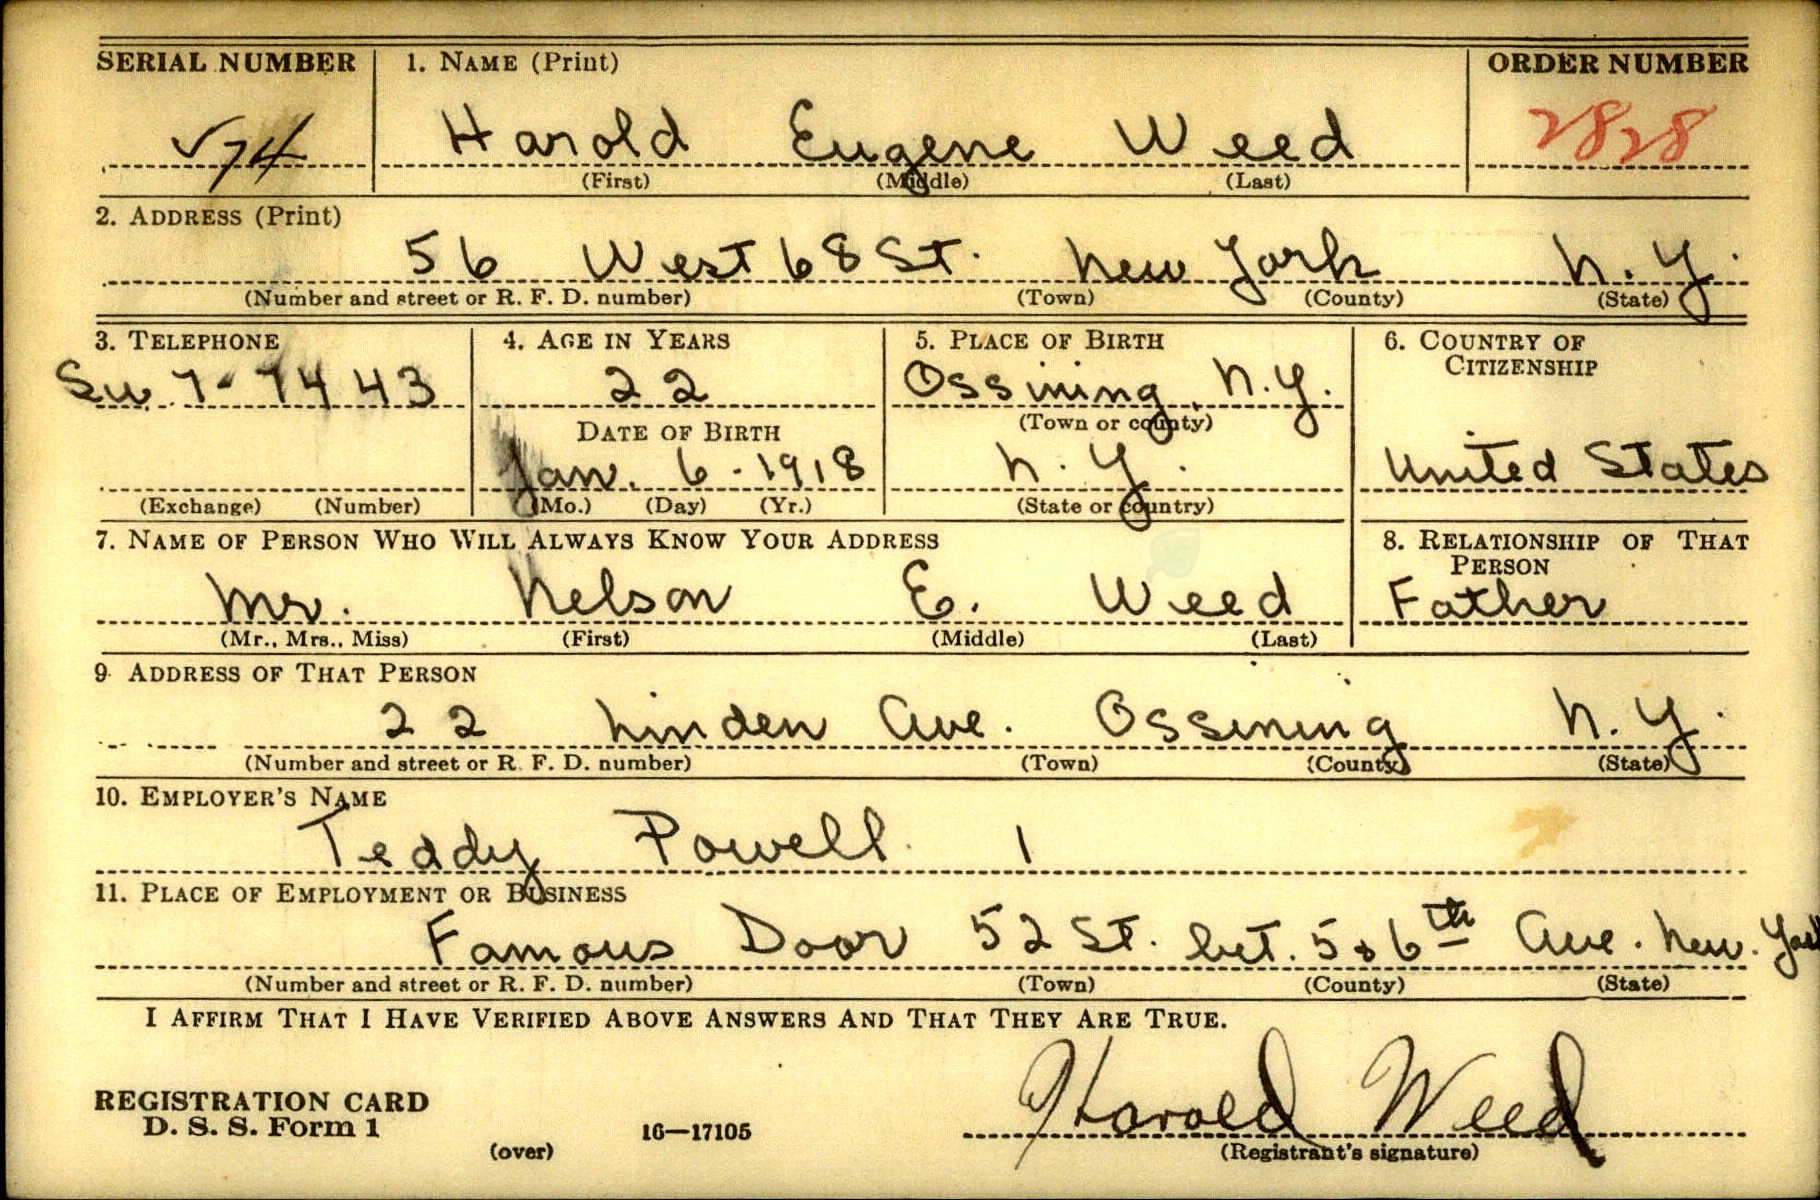 SERIAL NUMBER 1. NAME (Print) ORDER NUMBER
Harold Eugene Weed 2828
(First) (Middle) (Last)
2. ADDRESS (Print)
56 West 68 St. New York N.Y.
(Number and street or R. F. D. number) (Town) (County) (State)
3. TELEPHONE 4. AGE IN YEARS 5. PLACE OF BIRTH 6. COUNTRY OF CITIZENSHIP
Su 7-7443 22 Ossining, N.Y.
(Town or county)
DATE OF BIRTH
Jan. 6 - 1918 N.Y. United States
(Exchange) (Number) (Mo.) (Day) (Yr.) (State or country)
7. NAME OF PERSON WHO WILL ALWAYS KNOW YOUR ADDRESS 8. RELATIONSHIP OF THAT PERSON
Mr. Nelson E. Weed Father
(Mr., Mrs., Miss) (First) (Middle) (Last)
9. ADDRESS OF THAT PERSON
22 Linden Ave. Ossining N.Y.
(Number and street or R. F. D. number) (Town) (County) (State)
10. EMPLOYER'S NAME
Teddy Powell
11. PLACE OF EMPLOYMENT OR BUSINESS
Famous Door 52 St. bet. 5 & 6th Ave. New York
(Number and street or R. F. D. number) (Town) (County) (State)
I AFFIRM THAT I HAVE VERIFIED ABOVE ANSWERS AND THAT THEY ARE TRUE.
Harold Weed
REGISTRATION CARD
D. S. S. Form 1 16—17105
(over) (Registrant's signature)